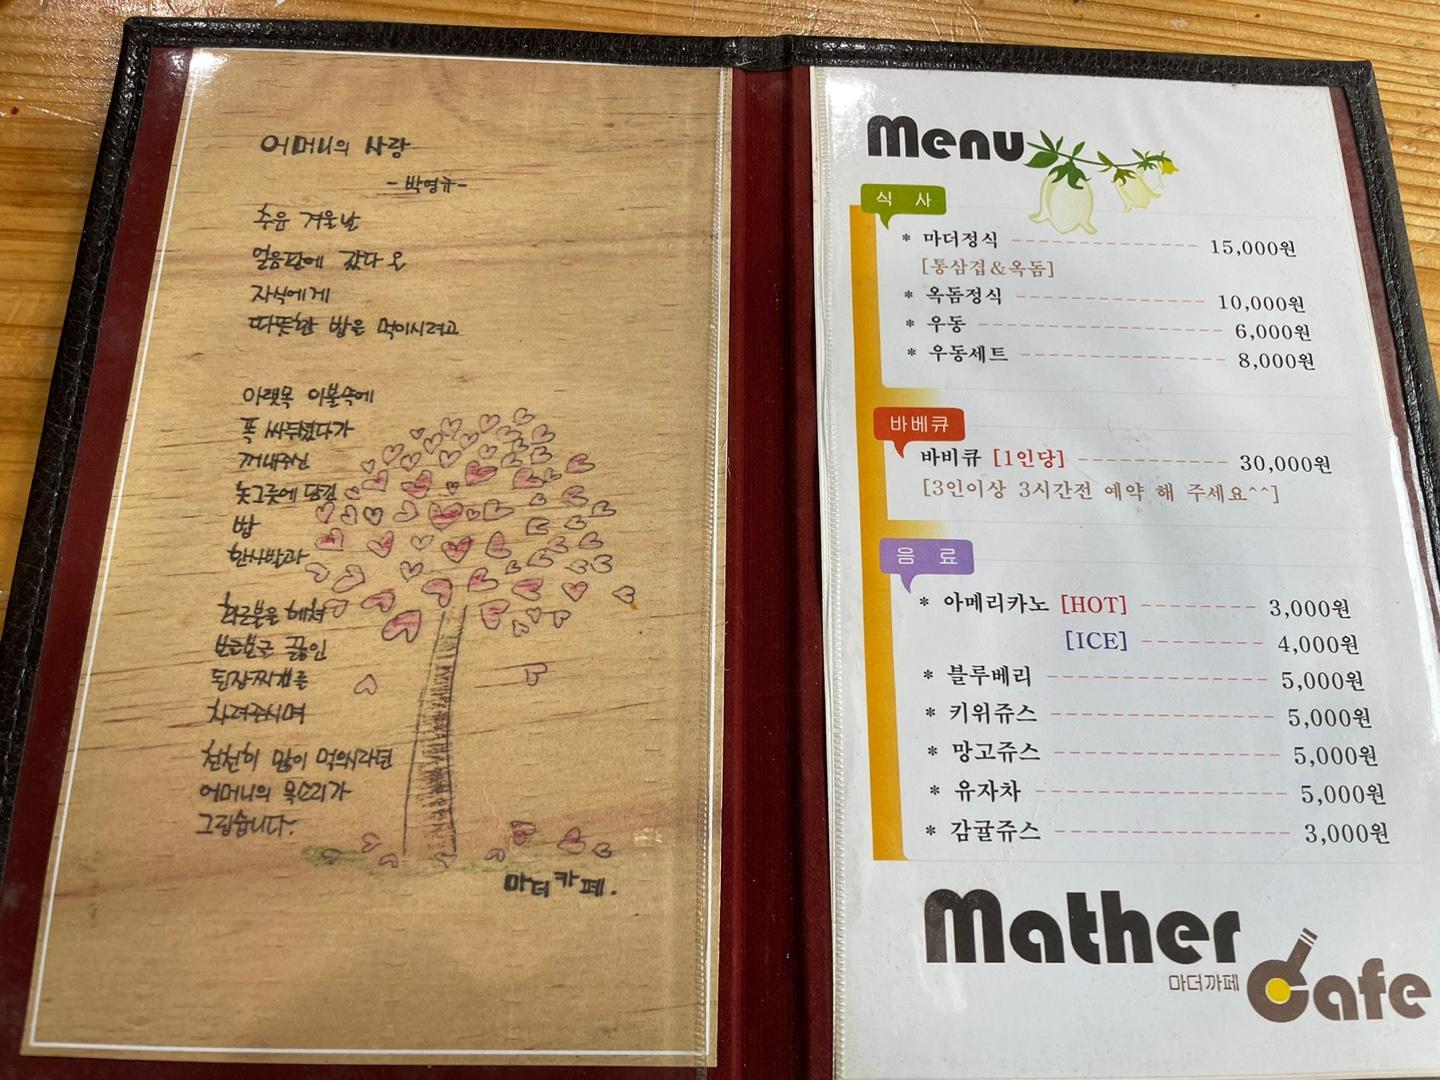 어머니의 사랑
-박영규-
추운 겨울날
얼음판에 갔다 온
자식에게
따뜻한 밥을 먹이시려고
아랫목 이불속에
푹 싸두셨다가
꺼내주신
놋그릇에 담긴
밥
한사발과
화로불을 헤쳐
보글보글 끓인
된장찌개를
차려주시며
천천히 많이 먹으시라던
어머니의 목소리가
그립습니다.
마더카페.
Menu
식 사
* 마더정식 15,000원
[통삼겹&옥돔]
* 옥돔정식 10,000원
* 우동 6,000원
* 우동세트 8,000원
바베큐
바비큐 [1인당] 30,000원
[3인이상 3시간전 예약 해 주세요^^]
음 료
* 아메리카노 [HOT] 3,000원
[ICE] 4,000원
* 블루베리 5,000원
* 키위쥬스 5,000원
* 망고쥬스 5,000원
* 유자차 5,000원
* 감귤쥬스 3,000원
Mather
마더까페 Cafe